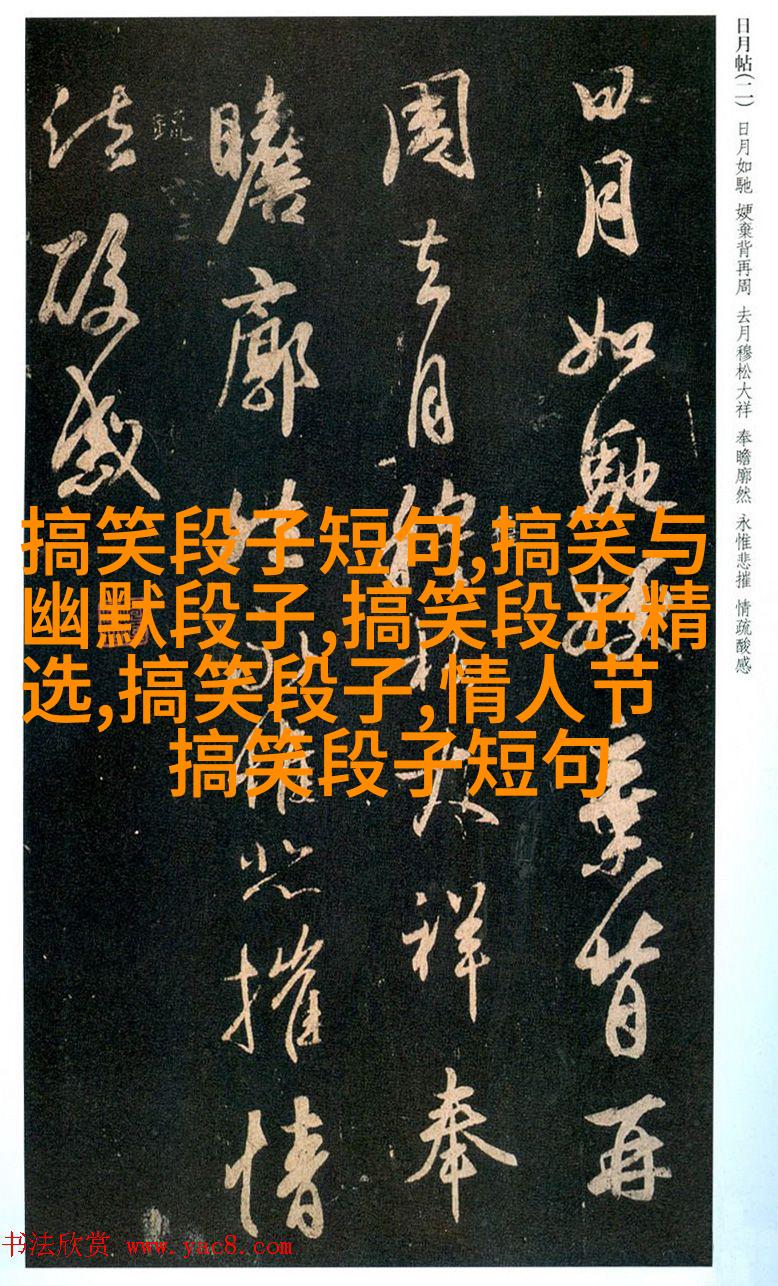 日月帖(二) 日月如馳 嫂棄背再周 去月穆松大祥 奉瞻廓然 永惟悲摧 情疏酸感
日月如馳嫂棄背再
周去月穆松大祥奉
瞻廓然永惟悲摧情
疏酸感
搞笑段子短句,搞笑与
幽默段子,搞笑段子精
选,搞笑段子,情人节
搞笑段子短句
书法欣赏 www.yac8.com